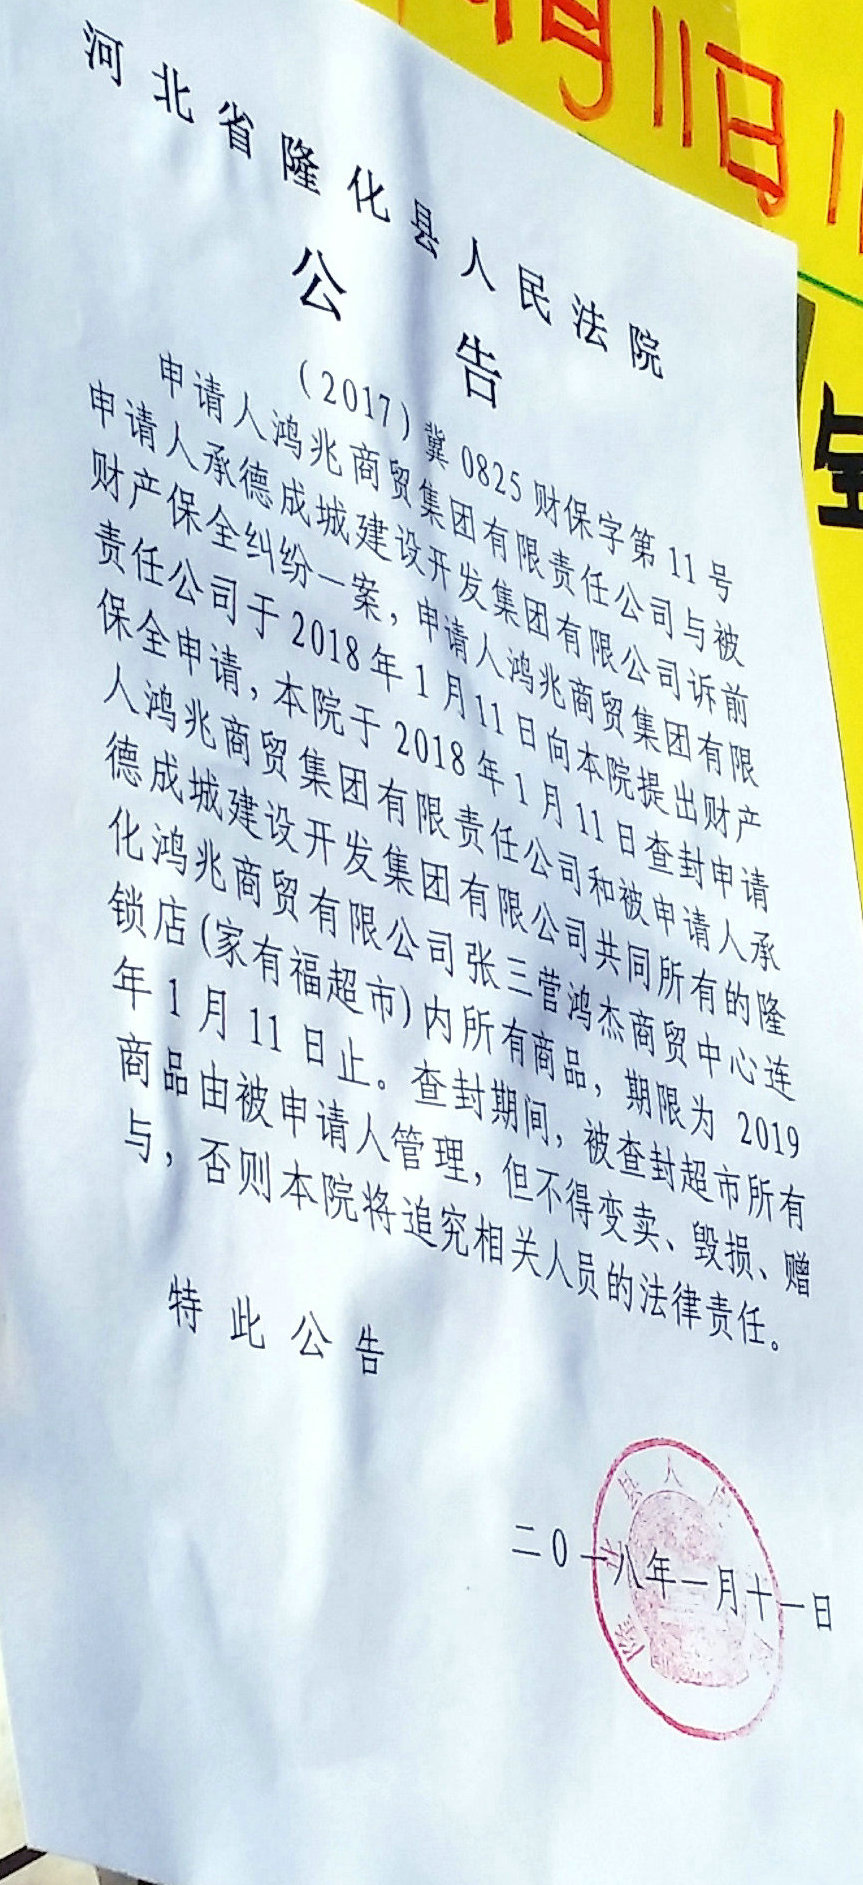 河北省隆化县人民法院
公告
(2017)冀0825财保字第11号
申请人鸿兆商贸集团有限责任公司与被
申请人承德成城建设开发集团有限公司诉前
财产保全纠纷一案，申请人鸿兆商贸集团有限
责任公司于2018年1月11日向本院提出财产
保全申请，本院于2018年1月11日查封申请
人鸿兆商贸集团有限责任公司和被申请人承
德成城建设开发集团有限公司共同所有的隆
化鸿兆商贸有限公司张三营鸿杰商贸中心连
锁店(家有福超市)内所有商品，期限为2019
年1月11日止。查封期间，被查封超市所有
商品由被申请人管理，但不得变卖、毁损、赠
与，否则本院将追究相关人员的法律责任。
特此公告
二0一八年一月十一日
月11日